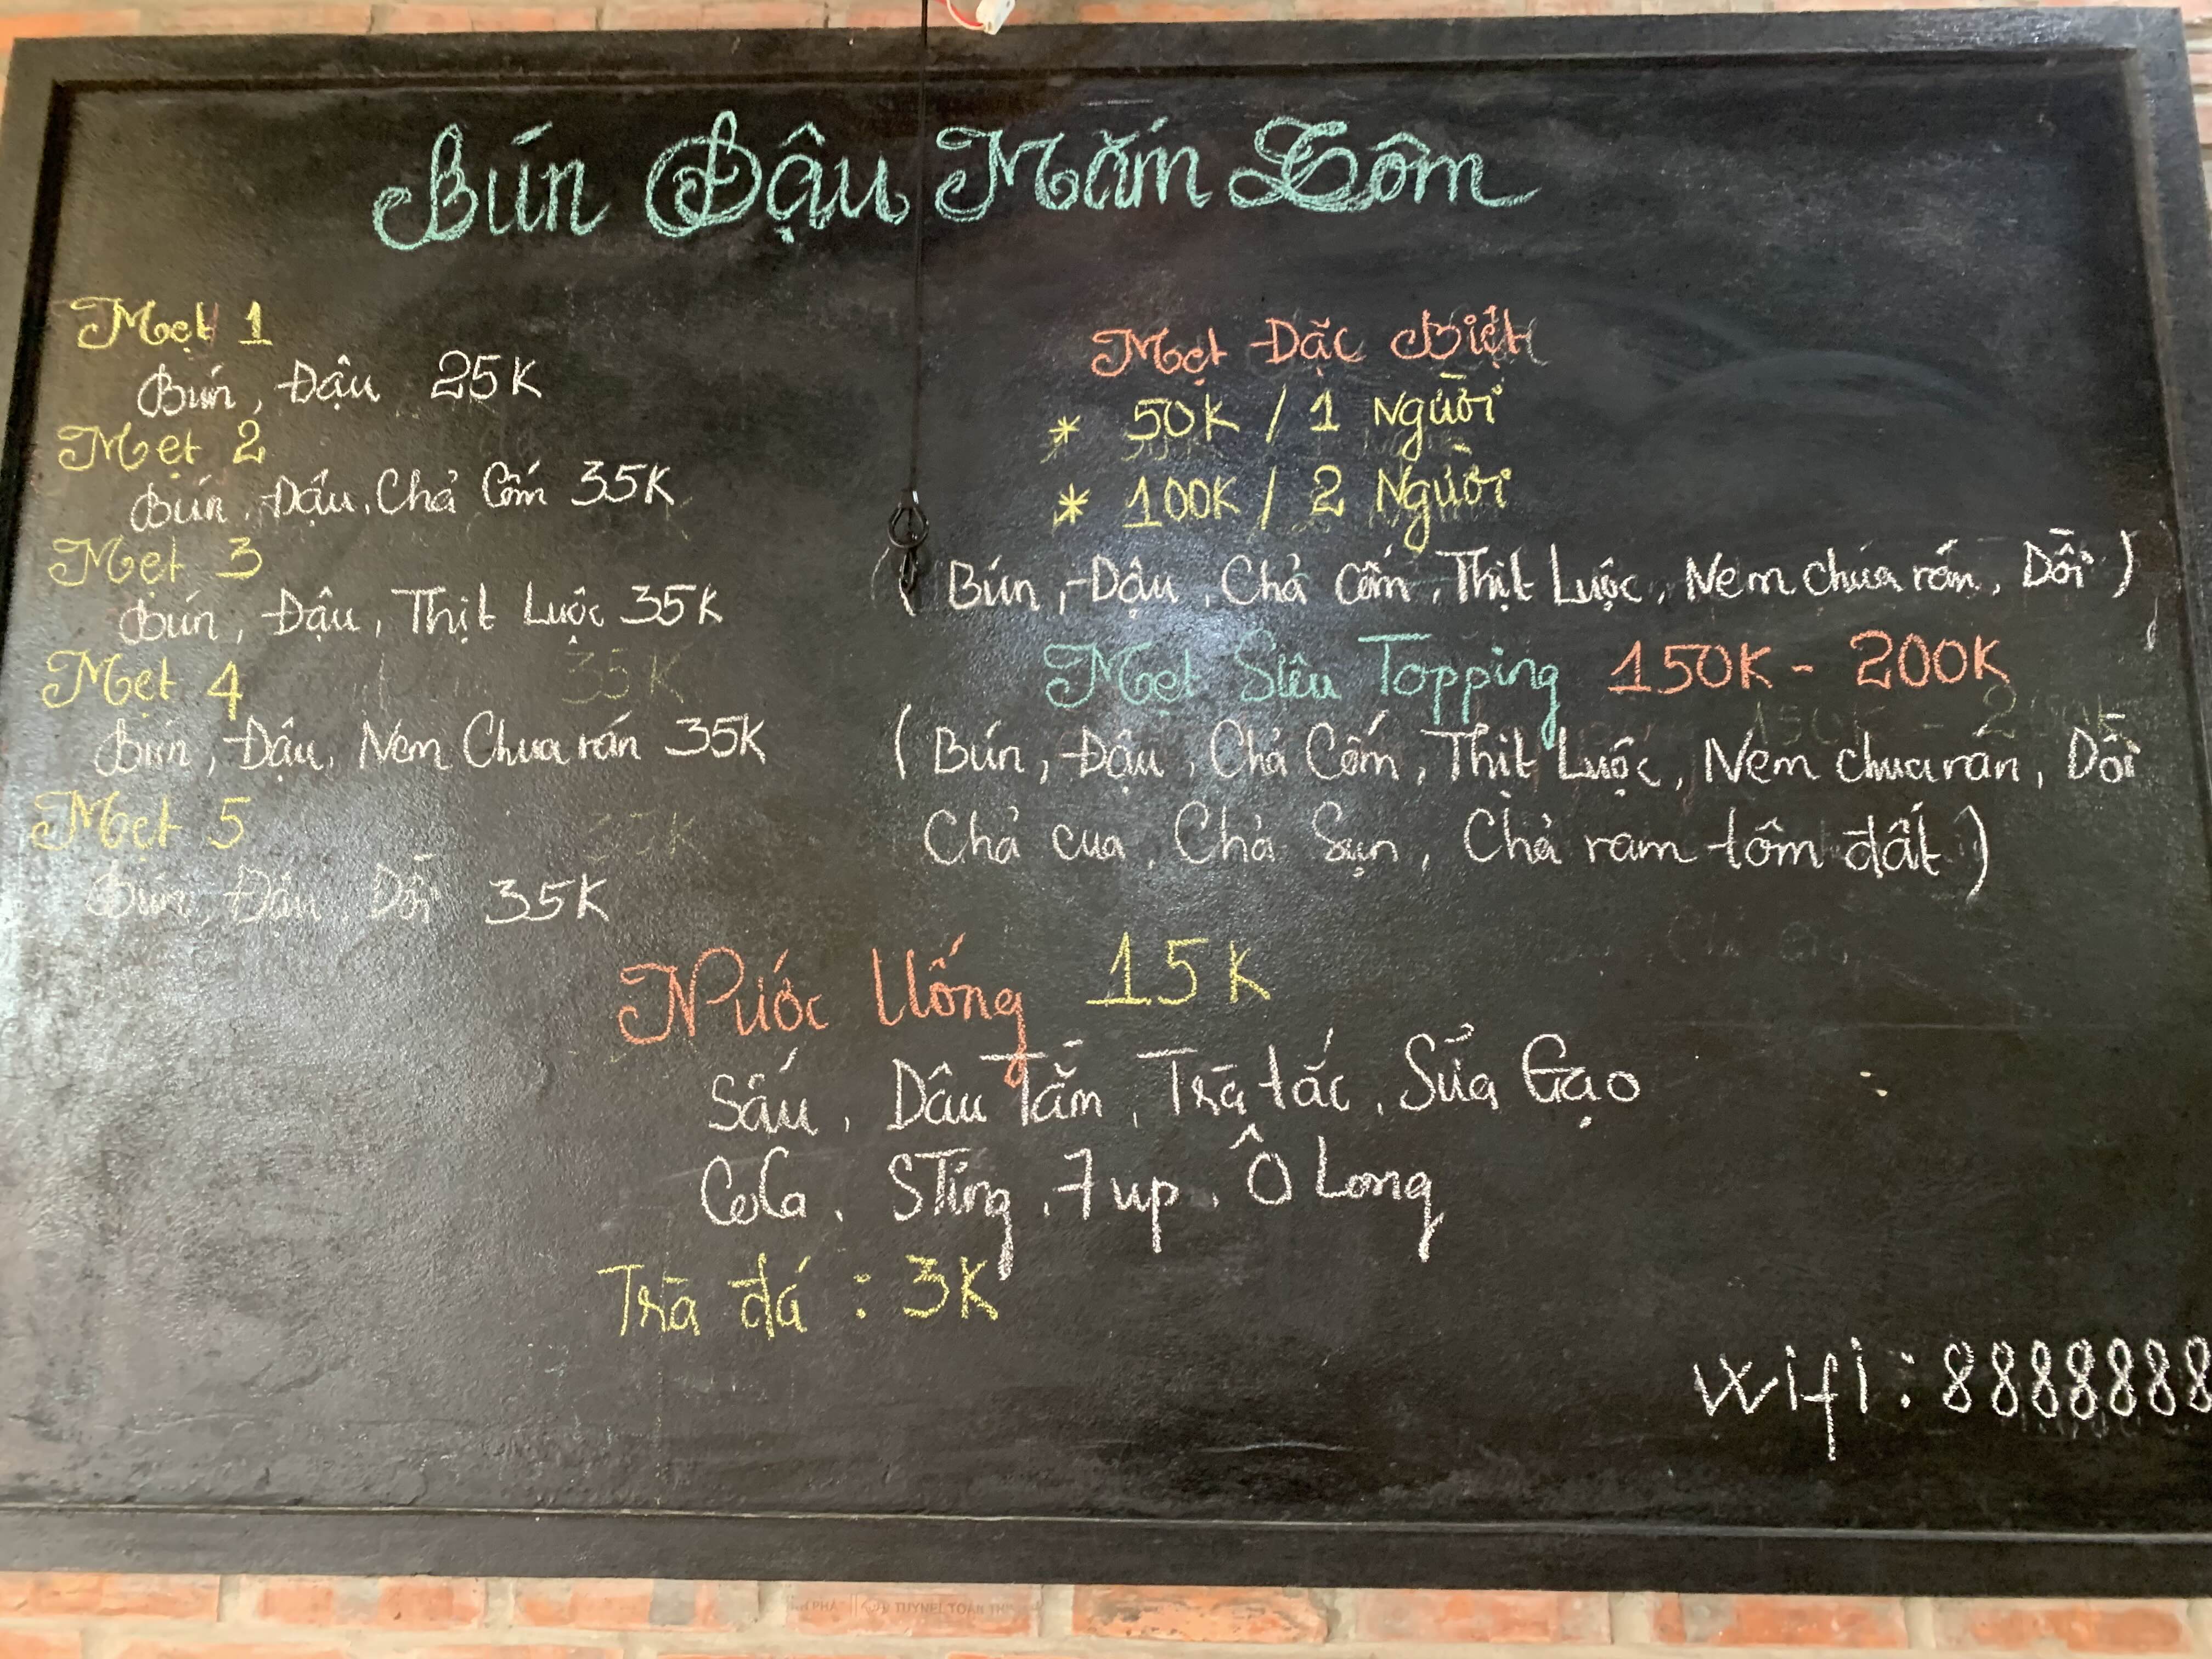 Bún Đậu Mắm Tôm
Mẹt 1
Bún, Đậu 25K
Mẹt 2
Bún, Đậu, Chả Cốm 35K
Mẹt 3
Bún, Đậu, Thịt Luộc 35K
Mẹt 4
Bún, Đậu, Nem Chua rán 35K
Mẹt 5
Bún, Đậu, Dồi 35K
Mẹt Đặc Biệt
* 50K / 1 Người
* 100K / 2 Người
( Bún, Đậu, Chả Cốm, Thịt Luộc, Nem chua rán, Dồi )
Mẹt Siêu Topping 150K - 200K
( Bún, Đậu, Chả Cốm, Thịt Luộc, Nem chua rán, Dồi
Chả cua, Chả Sụn, Chả ram tôm đất )
Nước Uống 15K
Sấu, Dâu Tằm, Trà tắc, Sữa Gạo
CoCa, STing, 7 up, Ô Long
Trà đá : 3K
Wifi : 8888888